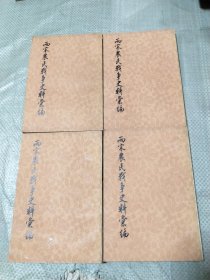 兩宋農民戰爭史料彙編
兩宋農民戰爭史料彙編
兩宋農民戰爭史料彙編
兩宋農民戰爭史料彙編